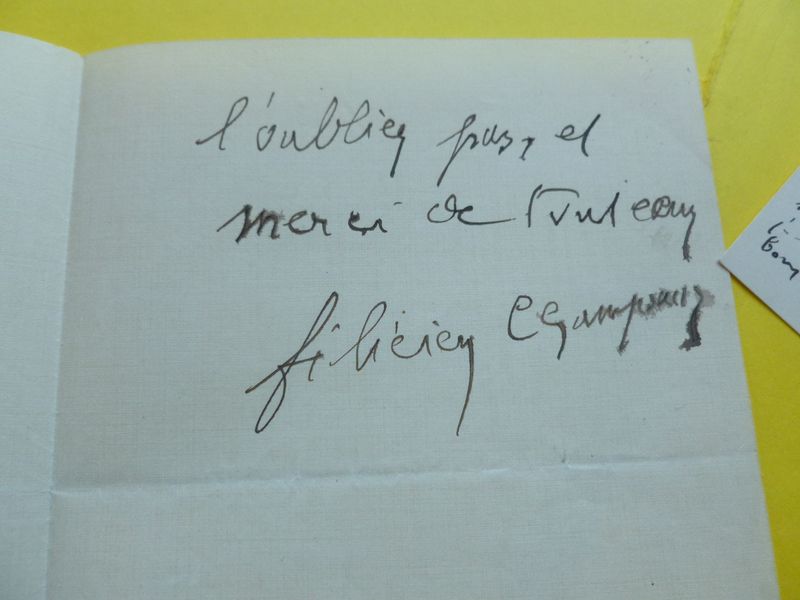 l'oubliez pas, et
merci de tout cœur
Félicien Champsaur